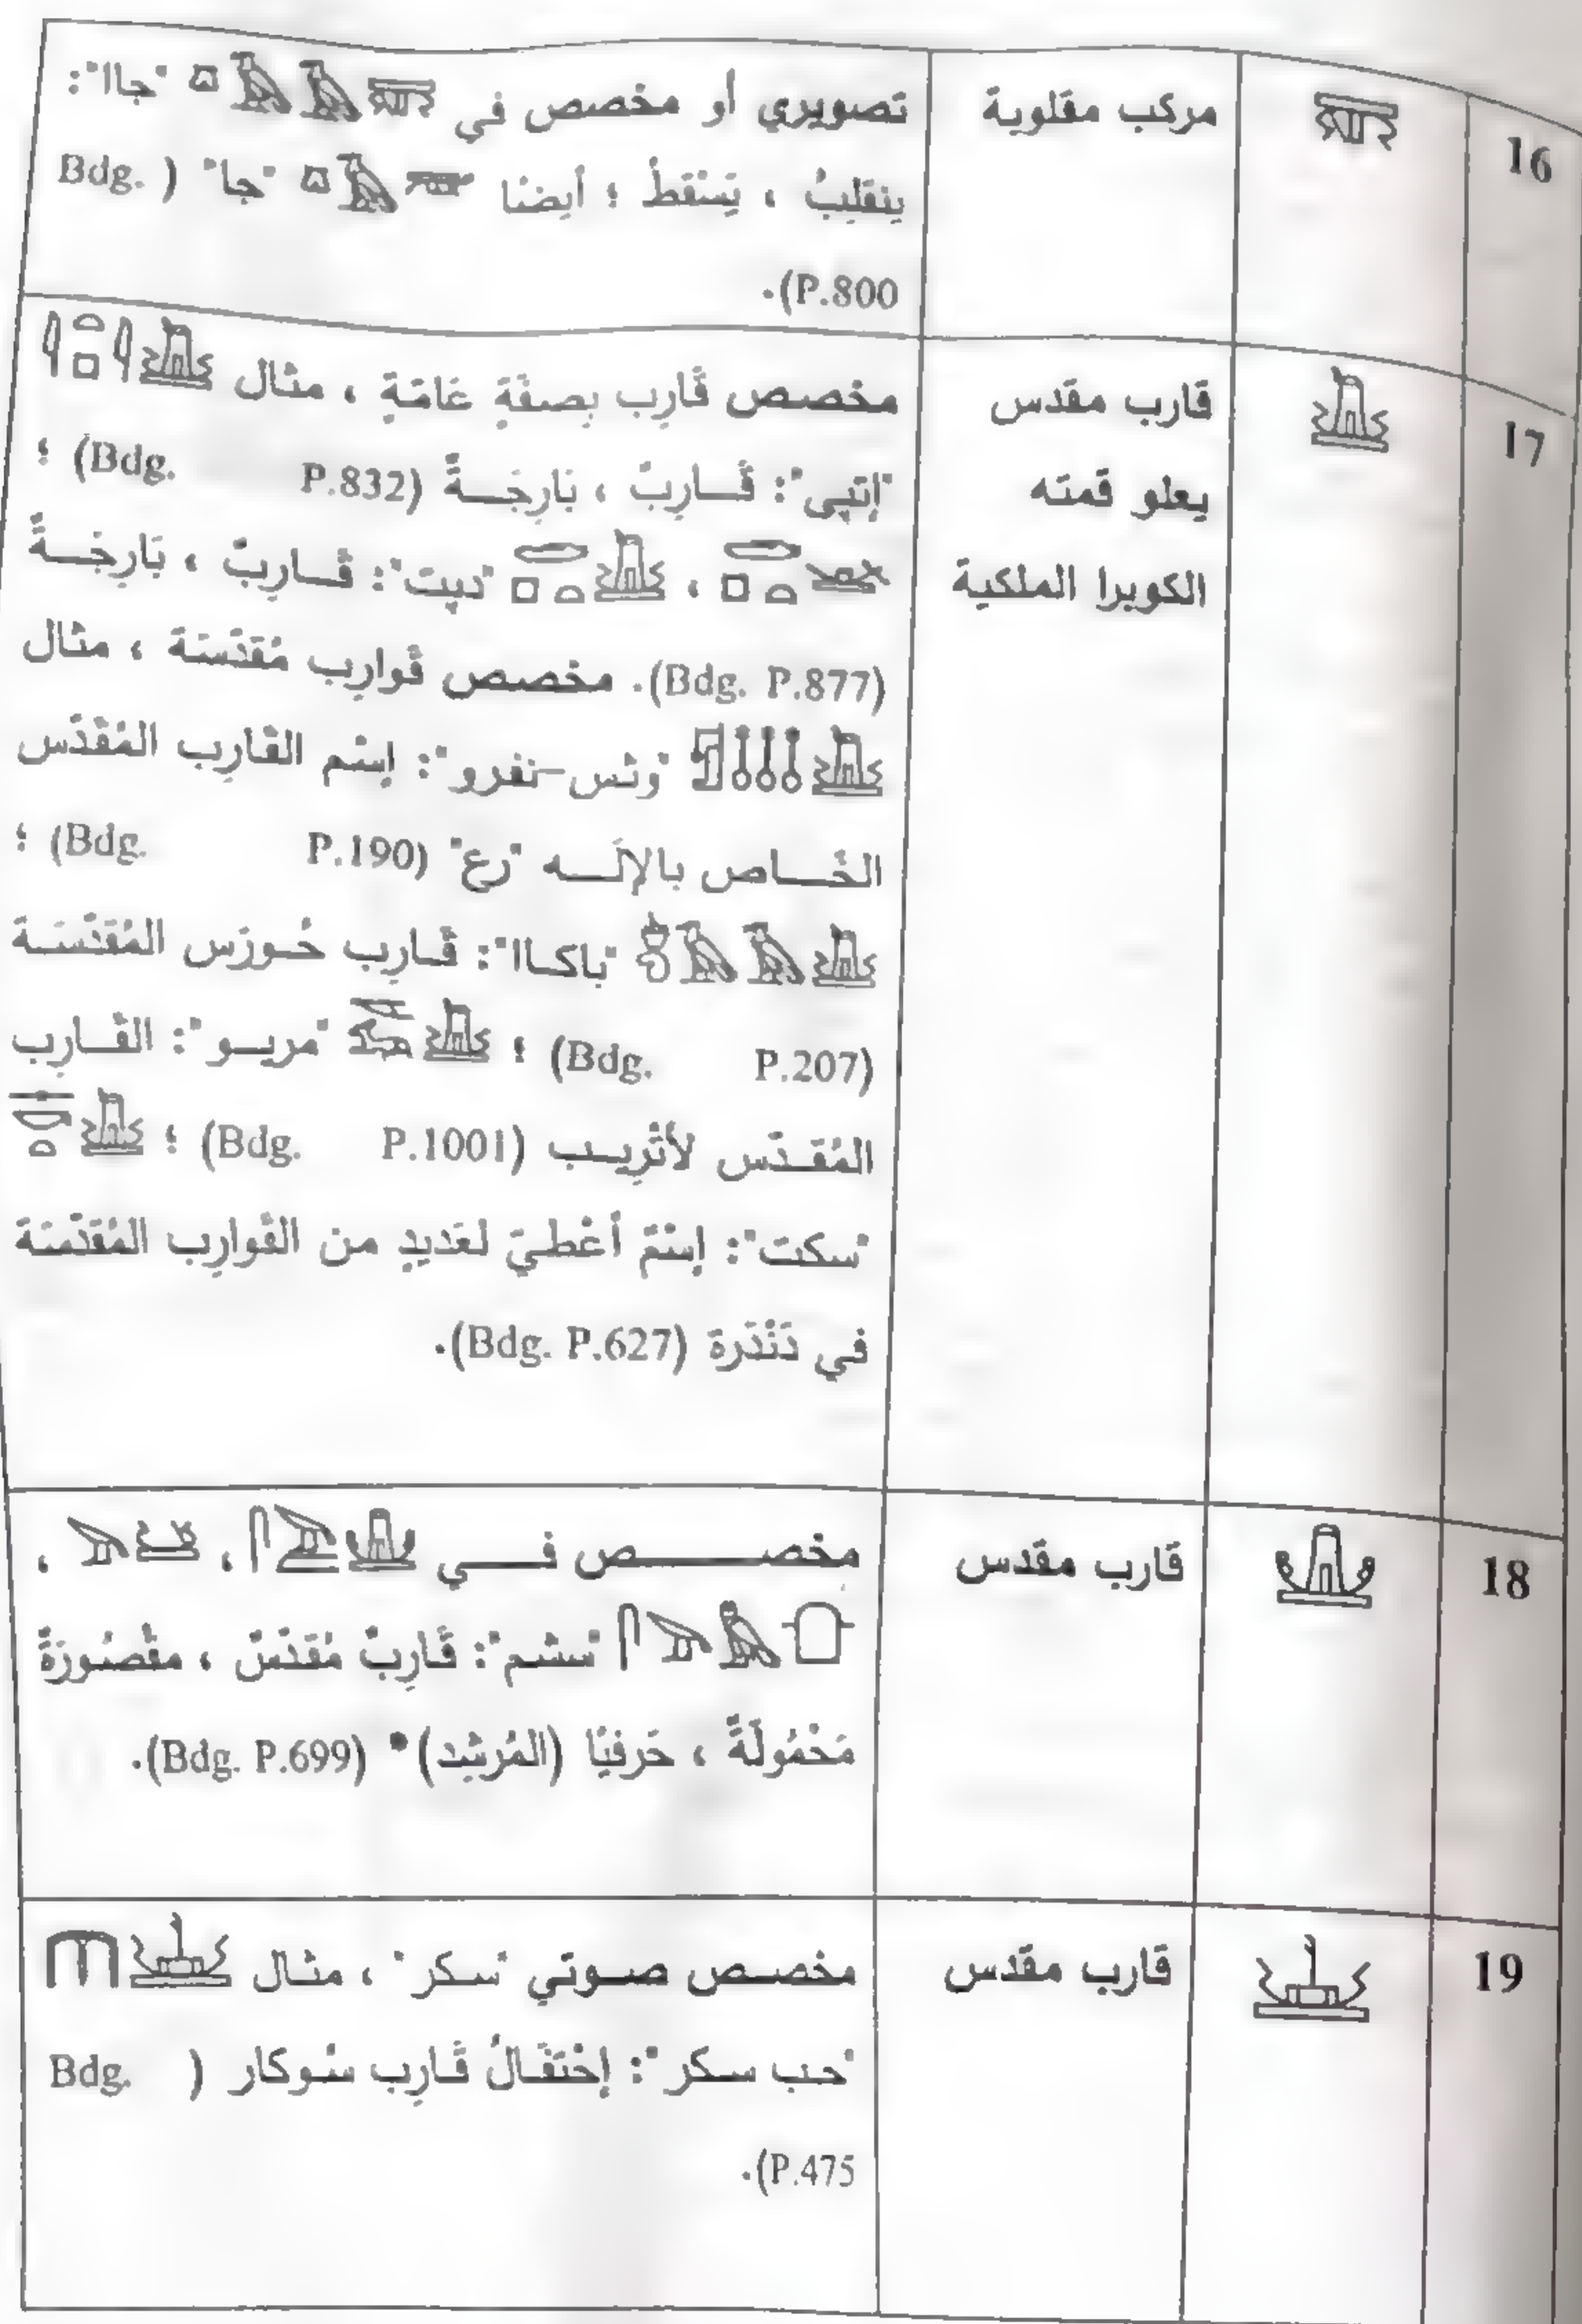 16 مركب مقلوبة تصويري أو مخصص في "جاا":
ينقلِبُ ، يَسْقطُ ؛ أيضًا "جا" (Bdg.
P.800).
17 قارب مقدس مخصص قَارِب بِصفَةٍ عَامَةٍ ، مثال
يعلو قمته "إتپى": قَــارِبٌ ، بَارِجَـــةٌ (Bdg. P.832) ؛
الكوبرا الملكية ، "دپت": قَــارِبٌ ، بَارِجَـــةٌ
(Bdg. P.877). مخصص قَوارِب مُقدَّسَة ، مثال
"وثس-نفرو": إسْم القَارِب المُقَدَّس
الخَـــاص بالإلَـــه "رع" (Bdg. P.190) ؛
"باكـاا": قَـارِب حُـورَس المُقَدَّسَـة
(Bdg. P.207) ؛ "مريــو": القَــارِب
المُقَـدَّس لأَثْرِيــب (Bdg. P.1001) ؛
"سكت": إسْمٌ أعْطيَ لعَديدٍ من القَوارِب المُقَدَّسَة
في دَنْدَرة (Bdg. P.627).
18 قارب مقدس مخصــــــــص فــــي ، ،
"سشم": قَارِبٌ مُقدَّسٌ ، مقْصُورَةٌ
مَحْمُولَةٌ ، حَرفيًا (المُرشِد)* (Bdg. P.699).
19 قارب مقدس مخصـص صـوتي "سـكر" ، مثـال
"حـب سـكر": إحْتفَـالُ قَـارِب سُـوكار (Bdg.
P.475).